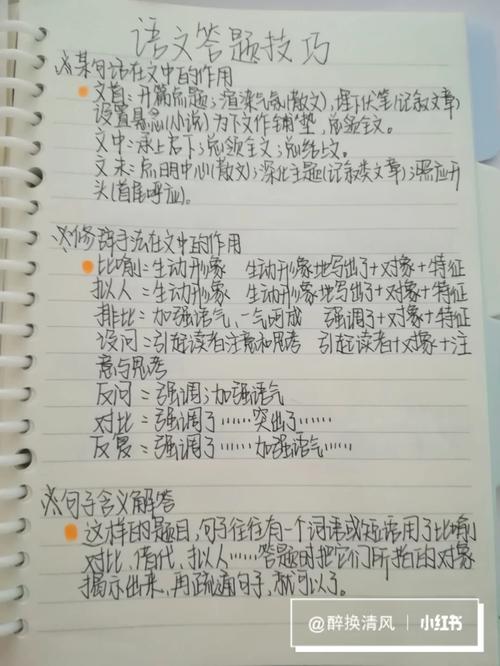 语文答题技巧
※某句话在文中的作用
文首:开篇点题;渲染气氛(散文),埋下伏笔(记叙文章)
设置悬念(小说)为下文作铺垫,总领全文。
文中:承上启下;总领全文;总结上文。
文末:点明中心(散文);深化主题(记叙类文章);照应开
头(首尾呼应)。
※修辞手法在文中的作用
比喻=生动形象 生动形象地写出了+对象+特征
拟人=生动形象 生动形象地写出了+对象+特征
排比=加强语气、一气呵成 强调了+对象+特征
设问=引起读者注意和思考 引起读者+对象+注
意与思考
反问=强调;加强语气
对比=强调了……突出了……
反复=强调了……加强语气……
※句子含义解答
这样的题目,句子往往有一个词语或短语用了比喻
对比、借代、拟人……答题时把它们所指的对象
揭示出来,再疏通句子,就可以了。
@醉换清风 小红书